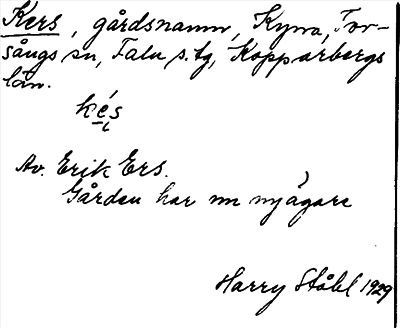 Kers, gårdsnamn, Kyna, Tor-
sångs sn, Falu s.tg, Kopparbergs
län.
kés
Av Erik Ers.
Gården har nu nyägare
Harry Ståhl 1929